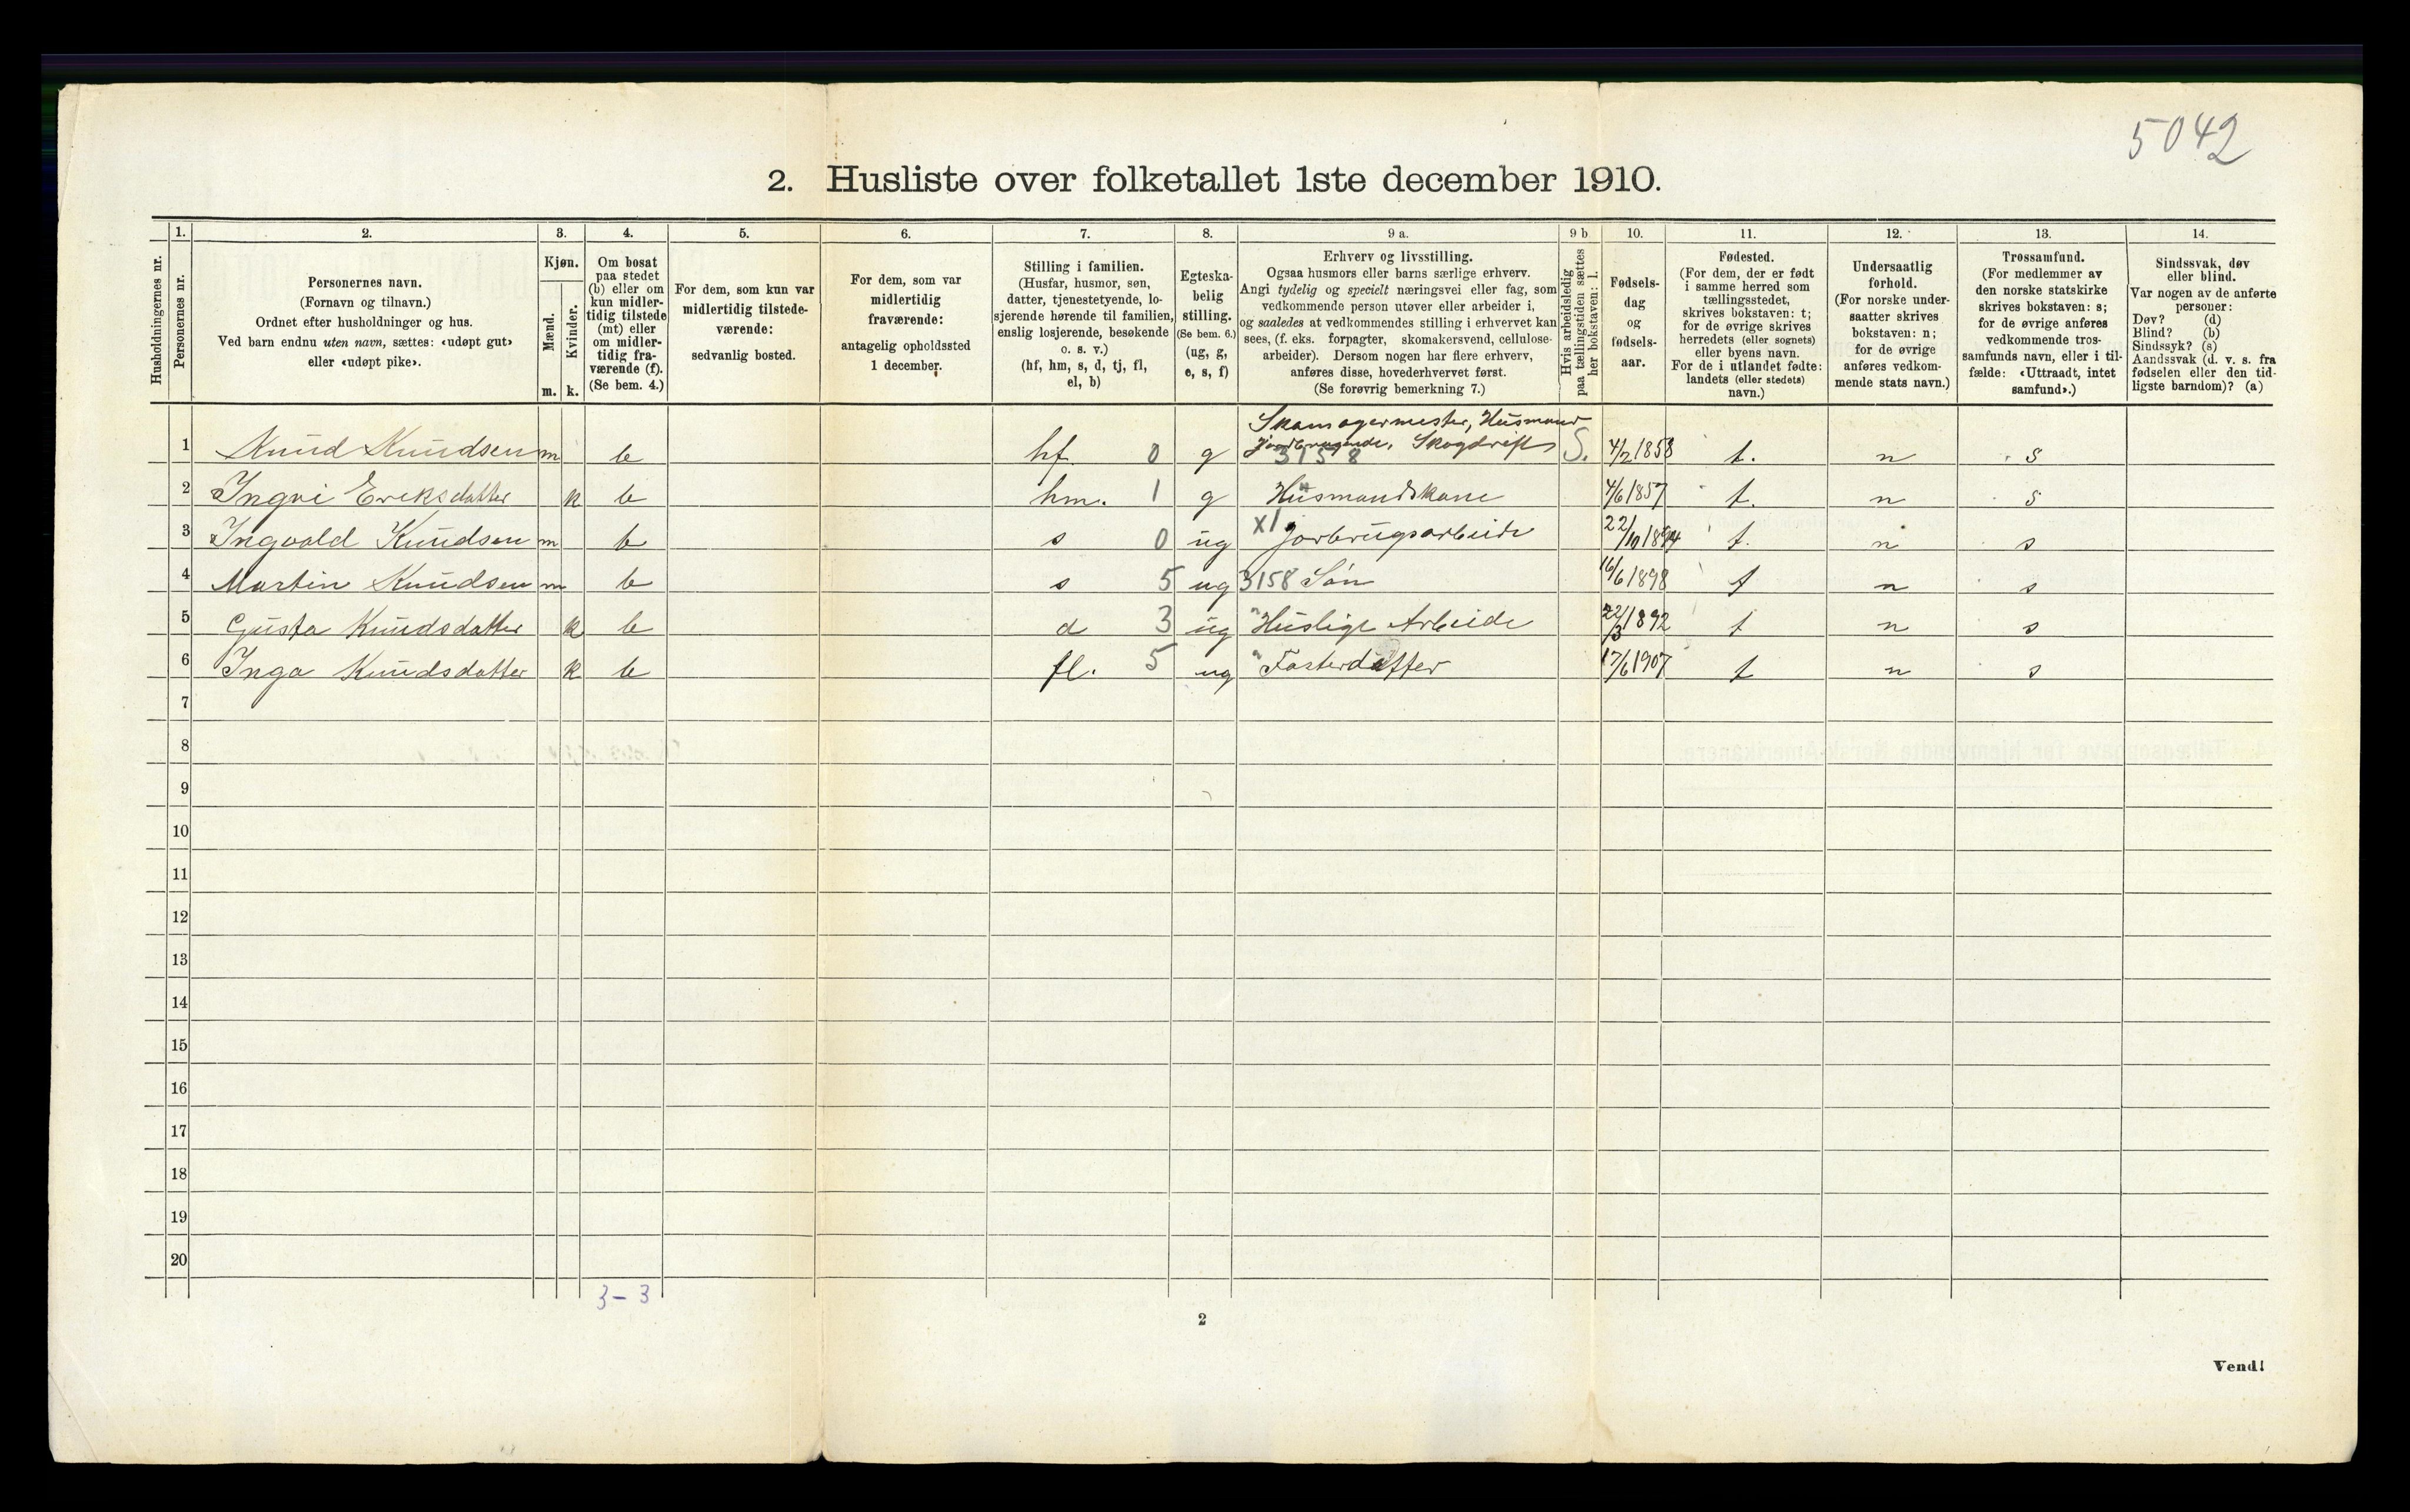 5042
2. Husliste over folketallet 1ste december 1910.
Husholdningernes nr.
1.
Personernes nr.
2.
Personernes navn.
(Fornavn og tilnavn.)
Ordnet efter husholdninger og hus.
Ved barn endnu uten navn, sættes: «udøpt gut»
eller «udøpt pike».
3.
Kjøn.
Mænd.
m.
Kvinder.
k.
4.
Om bosat
paa stedet
(b) eller om
kun midler-
tidig tilstede
(mt) eller
om midler-
tidig fra-
værende (f).
(Se bem. 4.)
5.
For dem, som kun var
midlertidig tilstede-
værende:
sedvanlig bosted.
6.
For dem, som var
midlertidig
fraværende:
antagelig opholdssted
1 december.
7.
Stilling i familien.
(Husfar, husmor, søn,
datter, tjenestetyende, lo-
sjerende hørende til familien,
enslig losjerende, besøkende
o. s. v.)
(hf, hm, s, d, tj, fl,
el, b)
8.
Egteska-
belig
stilling.
(Se bem. 6.)
(ug, g,
e, s, f)
9 a.
Erhverv og livsstilling.
Ogsaa husmors eller barns særlige erhverv.
Angi tydelig og specielt næringsvei eller fag, som
vedkommende person utøver eller arbeider i,
og saaledes at vedkommendes stilling i erhvervet kan
sees, (f. eks. forpagter, skomakersvend, cellulose-
arbeider). Dersom nogen har flere erhverv,
anføres disse, hovederhvervet først.
(Se forøvrig bemerkning 7.)
9 b
Hvis arbeidsledig
paa tællingstiden sættes
her bokstaven: l.
10.
Fødsels-
dag
og
fødsels-
aar.
11.
Fødested.
(For dem, der er født
i samme herred som
tællingsstedet,
skrives bokstaven: t;
for de øvrige skrives
herredets (eller sognets)
eller byens navn.
For de i utlandet fødte:
landets (eller stedets)
navn.)
12.
Undersaatlig
forhold.
(For norske under-
saatter skrives
bokstaven: n;
for de øvrige
anføres vedkom-
mende stats navn.)
13.
Trossamfund.
(For medlemmer av
den norske statskirke
skrives bokstaven: s;
for de øvrige anføres
vedkommende tros-
samfunds navn, eller i til-
fælde: «Uttraadt, intet
samfund».)
14.
Sindssvak, døv
eller blind.
Var nogen av de anførte
personer:
Døv? (d)
Blind? (b)
Sindssyk? (s)
Aandssvak (d. v. s. fra
fødselen eller den tid-
ligste barndom)? (a)
Skomagermester, Husmand
1 Knud Knudsen m b hf 0 g Jordbrugende, Skogdrift S. 4/2 1858 t. n s
3158
2 Ingri Eriksdatter k b hm. 1 g Husmandskone 4/6 1857 t. n s
3 Ingvald Knudsen m b s 0 ug X1 Jorbrugsarbeide 22/10 1894 t. n s
4 Martin Knudsen m b s 5 ug 3158 Søn 16/6 1898 t n s
5 Gusta Knudsdatter k b d 3 ug " Huslige Arbeide 22/3 1892 t n s
6 Inga Knudsdatter k b fl. 5 ug " Fosterdatter 17/6 1907 t n s
7
8
9
10
11
12
13
14
15
16
17
18
19
20
3-3
2
Vend!